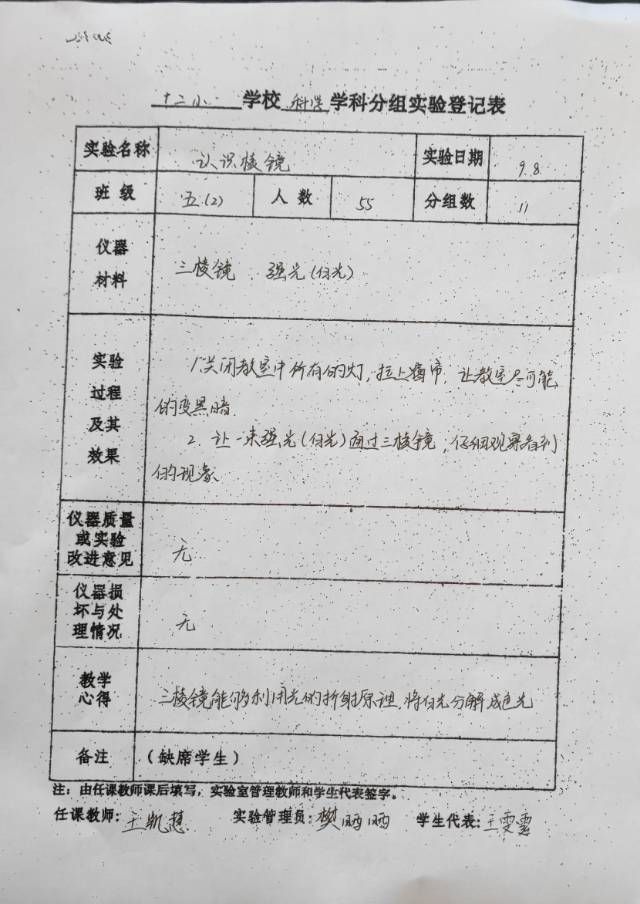 十二小 学校 科学 学科分组实验登记表
实验名称 认识棱镜 实验日期 9.8
班级 五(2) 人数 55 分组数 11
仪器
材料
三棱镜 强光(白光)
实验
过程
及其
效果
1.关闭教室中所有的灯,拉上窗帘,让教室尽可能
的变黑暗.
2. 让一束强光(白光)通过三棱镜,仔细观察看到
的现象
仪器质量
或实验
改进意见
无
仪器损
坏与处
理情况
无
教学
心得
三棱镜能够利用光的折射原理,将白光分解成色光
备注 (缺席学生)
注:由任课教师课后填写,实验室管理教师和学生代表签字。
任课教师:王凯慧 实验管理员:樊晒晒 学生代表:王雯